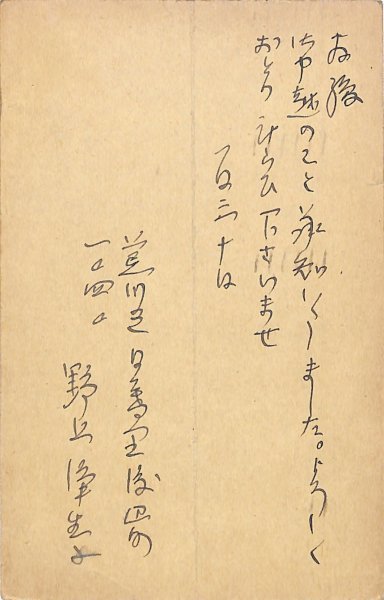 拝復
御申越のこと承知いたしました。よろしく
おとり計らひ下さいませ
一月三十日
荒川区日暮里渡辺町
一〇四〇
野上彌生子